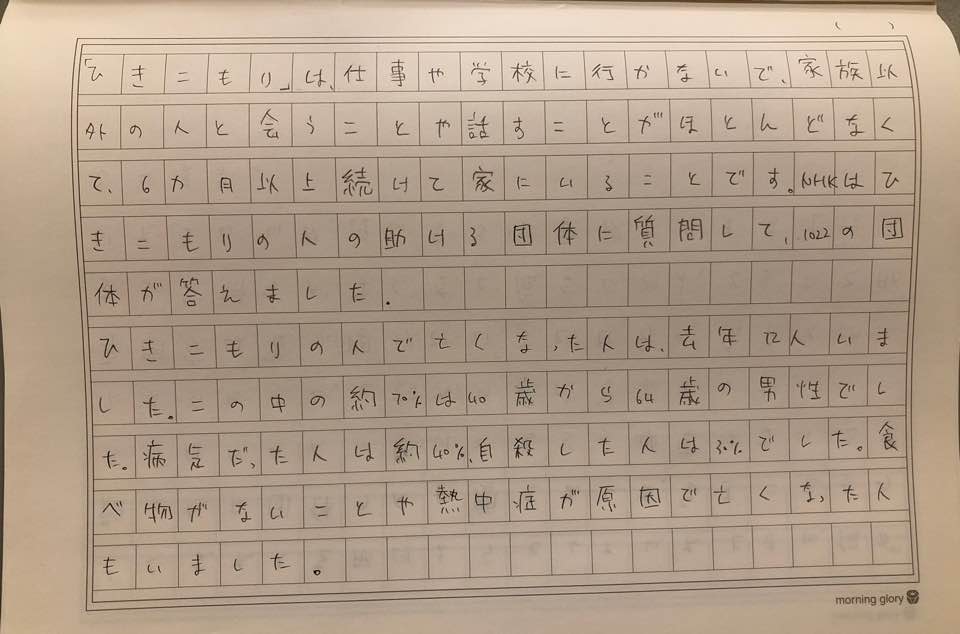 (　)
「ひきこもり」は、仕事や学校に行かないで、家族以
外の人と会うことや話すことがほとんどなく
て、6か月以上続けて家にいることです。NHKはひ
きこもりの人の助ける団体に質問して、1022の団
体が答えました。
ひきこもりの人で亡くなった人は、去年72人いま
した。この中の約70%は40歳から64歳の男性でし
た。病気だった人は約40%、自殺した人は30%でした。食
べ物がないことや熱中症が原因で亡くなった人
もいました。
morning glory